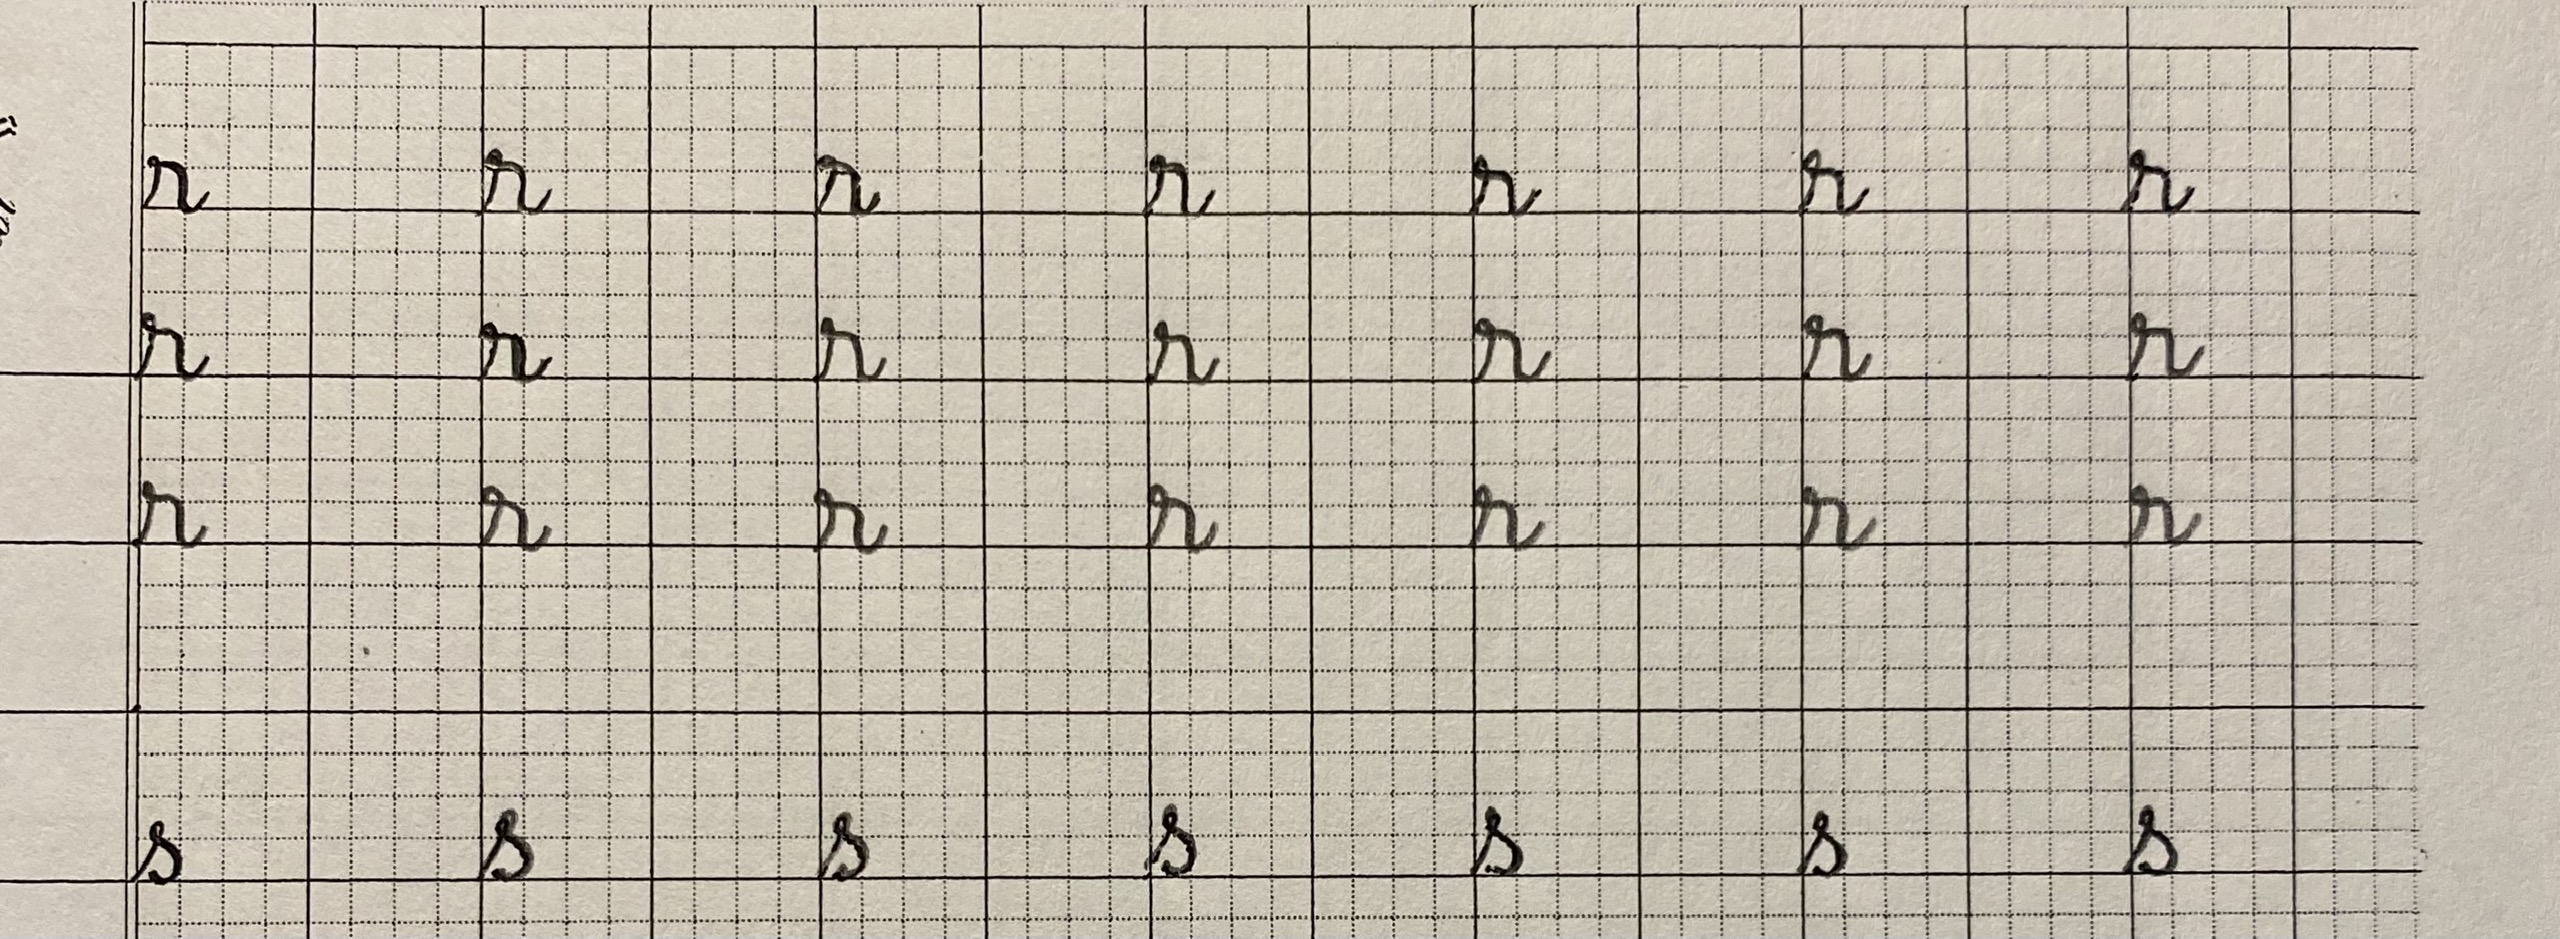 r r r r r r r
r r r r r r r
r r r r r r r
s s s s s s s